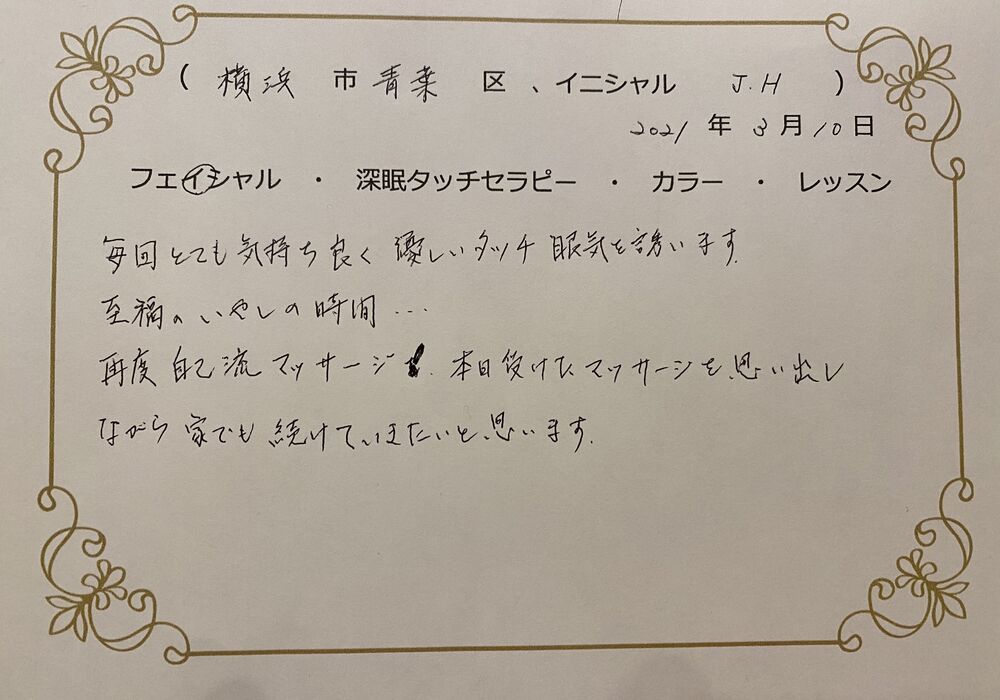 ( 横浜 市 青葉 区 、イニシャル J.H )
2021 年 3 月 10 日
フェイシャル ・ 深眠タッチセラピー ・ カラー ・ レッスン
毎回とても気持ち良く優しいタッチ眠気を誘います。
至福のいやしの時間...
再度自己流マッサージ、本日受けたマッサージを思い出し
ながら家でも続けていきたいと思います。